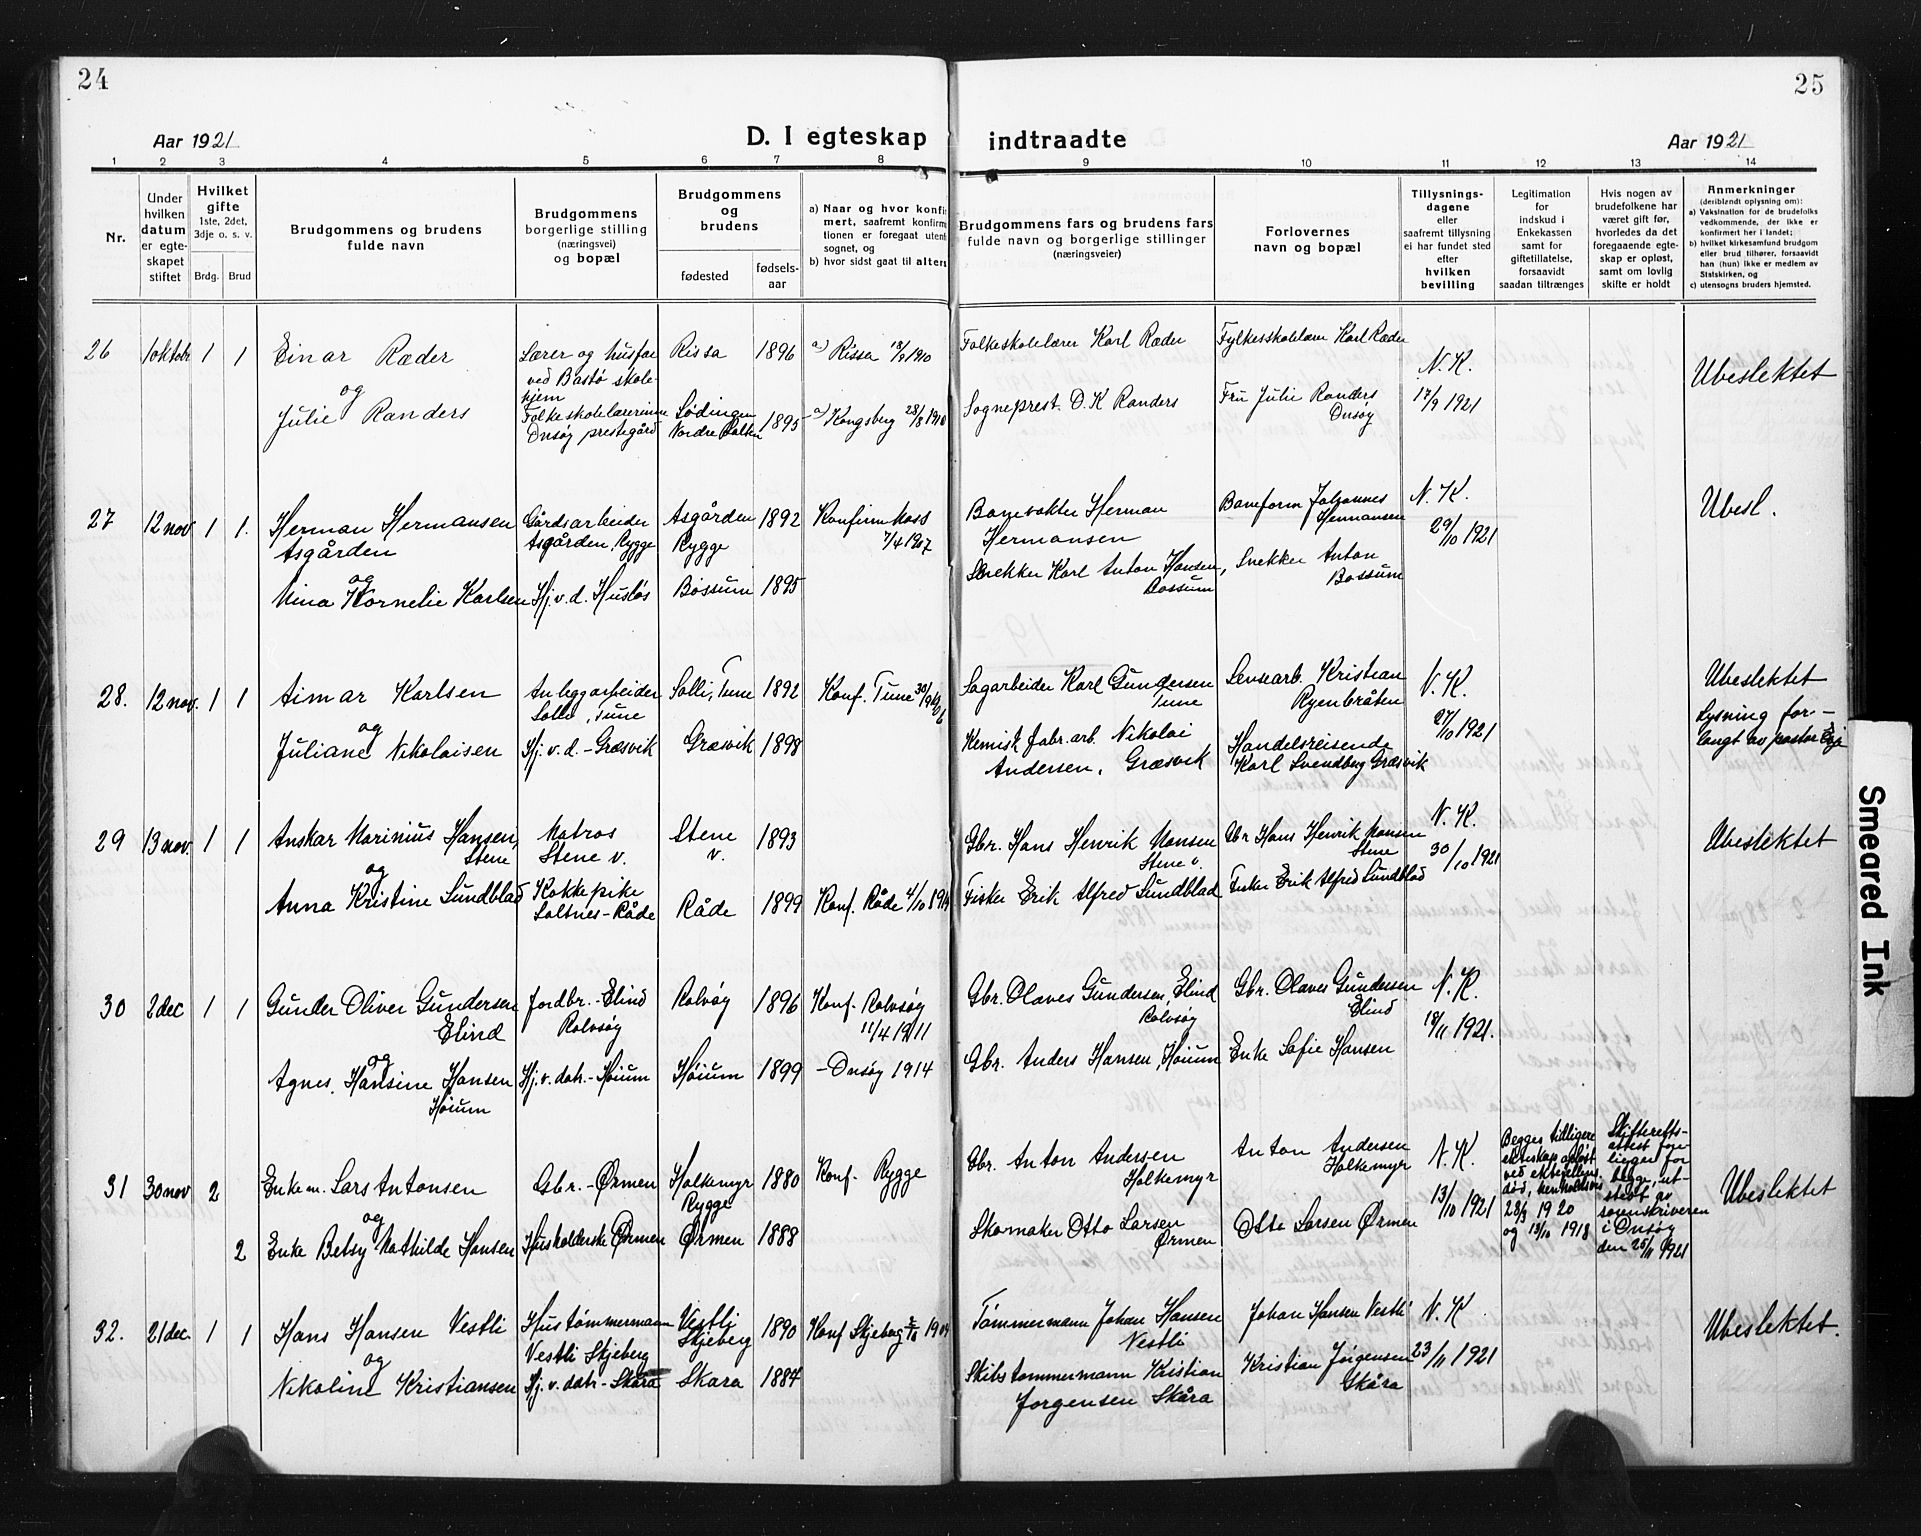 24
Aar 1921
D. I egteskap
1 2 3 4 5 6 7 8
Nr.
Under
hvilken
datum
er egte-
skapet
stiftet
Hvilket
gifte
1ste, 2det,
3dje o. s. v.
Brdg. Brud
Brudgommens og brudens
fulde navn
Brudgommens
borgerlige stilling
(næringsvei)
og bopæl
Brudgommens
og
brudens
fødested
fødsels-
aar
a) Naar og hvor konfir
mert, saafremt konfirm
tionen er foregaat uten
sognet, og
b) hvor sidst gaat til alters
26 1 oktobr 1 1
Einar Ræder
og
Julie Randers
Lærer og husfar
ved Bastø skole-
hjem
Folkeskolelærerinne
Onsøy prestegård
Rissa 1896
Lødingen
Nordre Salten 1895
a) Rissa 18/9 1910
a) Kongsberg 28/8 1910
27 12 nov 1 1.
Herman Hermansen
Asgården
og
Mina Kornelie Karlsen
Gårdsarbeider
Asgården, Rygge
Hj. v. d. Husløs
Asgården
Rygge 1892
Bossum 1895
Konfirm Moss
7/4 1907
28. 12 nov. 1 1
Aimar Karlsen
og
Juliane Nikolaisen
Anleggarbeider
Solli, Tune
Hj. v. d. - Græsvik
Solli, Tune 1892
Græsvik 1898
Konf. Tune 30/9
29 13 nov. 1 1
Anskar Marinius Hansen,
Stene
og
Anna Kristine Sundblad
Matros
Stene v.
Kokkepike
Saltnes - Råde
Stene
v. 1893
Råde 1899
Konf. Råde 4/10 1914
30 2 dec 1 1
Gunder Oliver Gundersen
Elind
og
Agnes Hansine Hansen
Høium
Jordbr. - Elind
Rolvsøy
Hj. v. datr. - Høium
Rolvsøy 1896
Høium 1899
Konf. Rolvsøy
11/4 1911
- Onsøy 1914
31 30 nov 2
Enkem. Lars Antonsen
og
2 Enke Betsy Mathilde Hansen
Gbr. - Ørmen
Husholderske Ørmen
Holkemyr
Rygge 1880
Ørmen 1888
Konf. Rygge
32. 21 dec. 1 1
Hans Hansen Vestli
og
Nikoline Kristiansen
Hustømmermann
Vestli Skjeberg
Hj. v. datr. - Skåra
Vestli
Skjeberg 1890
Skara 1884
Konf Skjeberg 2/10 1904
25
indtraadte
Aar 1921
9 10 11 12 13 14
Brudgommens fars og brudens fars
fulde navn og borgerlige stillinger
(næringsveier)
Forlovernes
navn og bopæl
Tillysnings-
dagene
eller
saafremt tillysning
ei har fundet sted
efter
hvilken
bevilling
Legitimation
for
indskud i
Enkekassen
samt for
giftetillatelse,
forsaavidt
saadan tiltrænges
Hvis nogen av
brudefolkene har
været gift før,
hvorledes da det
foregaaende egte-
skap er opløst,
samt om lovlig
skifte er holdt
Anmerkninger
(deriblandt oplysning om):
a) Vaksination for de brudefolks
vedkommende, der ikke er
konfirmert her i landet;
b) hvilket kirkesamfund brudgom
eller brud tilhører, forsaavidt
han (hun) ikke er medlem av
Statskirken, og
c) utensogns bruders hjemsted.
Folkeskolelærer Karl Ræder
Sogneprest. O. K Randers
Fylkesskolelærer Karl Ræder
Fru Julie Randers
Onsøy
N. K.
17/9 1921
Ubeslektet
Banevokter Herman
Hermansen
Snekker Karl Anton Hansen,
Bossum
Baneform Johannes
Hermansen
Snekker Anton
Bossum
N. K.
29/10 1921
Ubesl.
Sagarbeider Karl Gundersen
Tune
Kemisk fabr. arb. Nikolai
Andersen, Græsvik
Kristian
Ryenbråten
Handelsreisende
Karl Svendberg Græsvik
N. K.
27/10 1921
Ubeslektet
Lysning for-
langt av pastor
Gbr. Hans Henrik Hansen
Stene v.
Fisker Erik Alfred Sundblad
Gbr Hans Henrik Hansen
Stene
Fisker Erik Alfred Sundblad
N. K.
30/10 1921
Ubeslektet
Gbr. Olaves Gundersen, Elind
Rolvsøy
Gbr. Anders Hansen, Høium
Gbr. Olaves Gundersen
Elind
Enke Sofie Hansen
N. K.
18/11 1921.
Gbr. Anton Andersen
Holkemyr
Skomaker Otto Larsen
Ørmen
Anton Andersen
Holkemyr
Otto Larsen Ørmen
N. K.
13/10 1921
Begges tidligere
ekteskap opløst
ved ektefellens
død, henholdsvis
28/3 1920
og 13/10 1918
Skifteretts-
attest fore-
ligger for
begge, ut-
stedt av
sorenskriveren
i Onsøy
den 25/11 1921
Ubeslektet
Tømmermann Johan Hansen
Vestli
Skibstømmermann Kristian
Jørgensen Skåra
Johan Hansen Vestli
Kristian Jørgensen
Skåra
N. K.
23/11 1921
Ubeslektet.
Smeared Ink